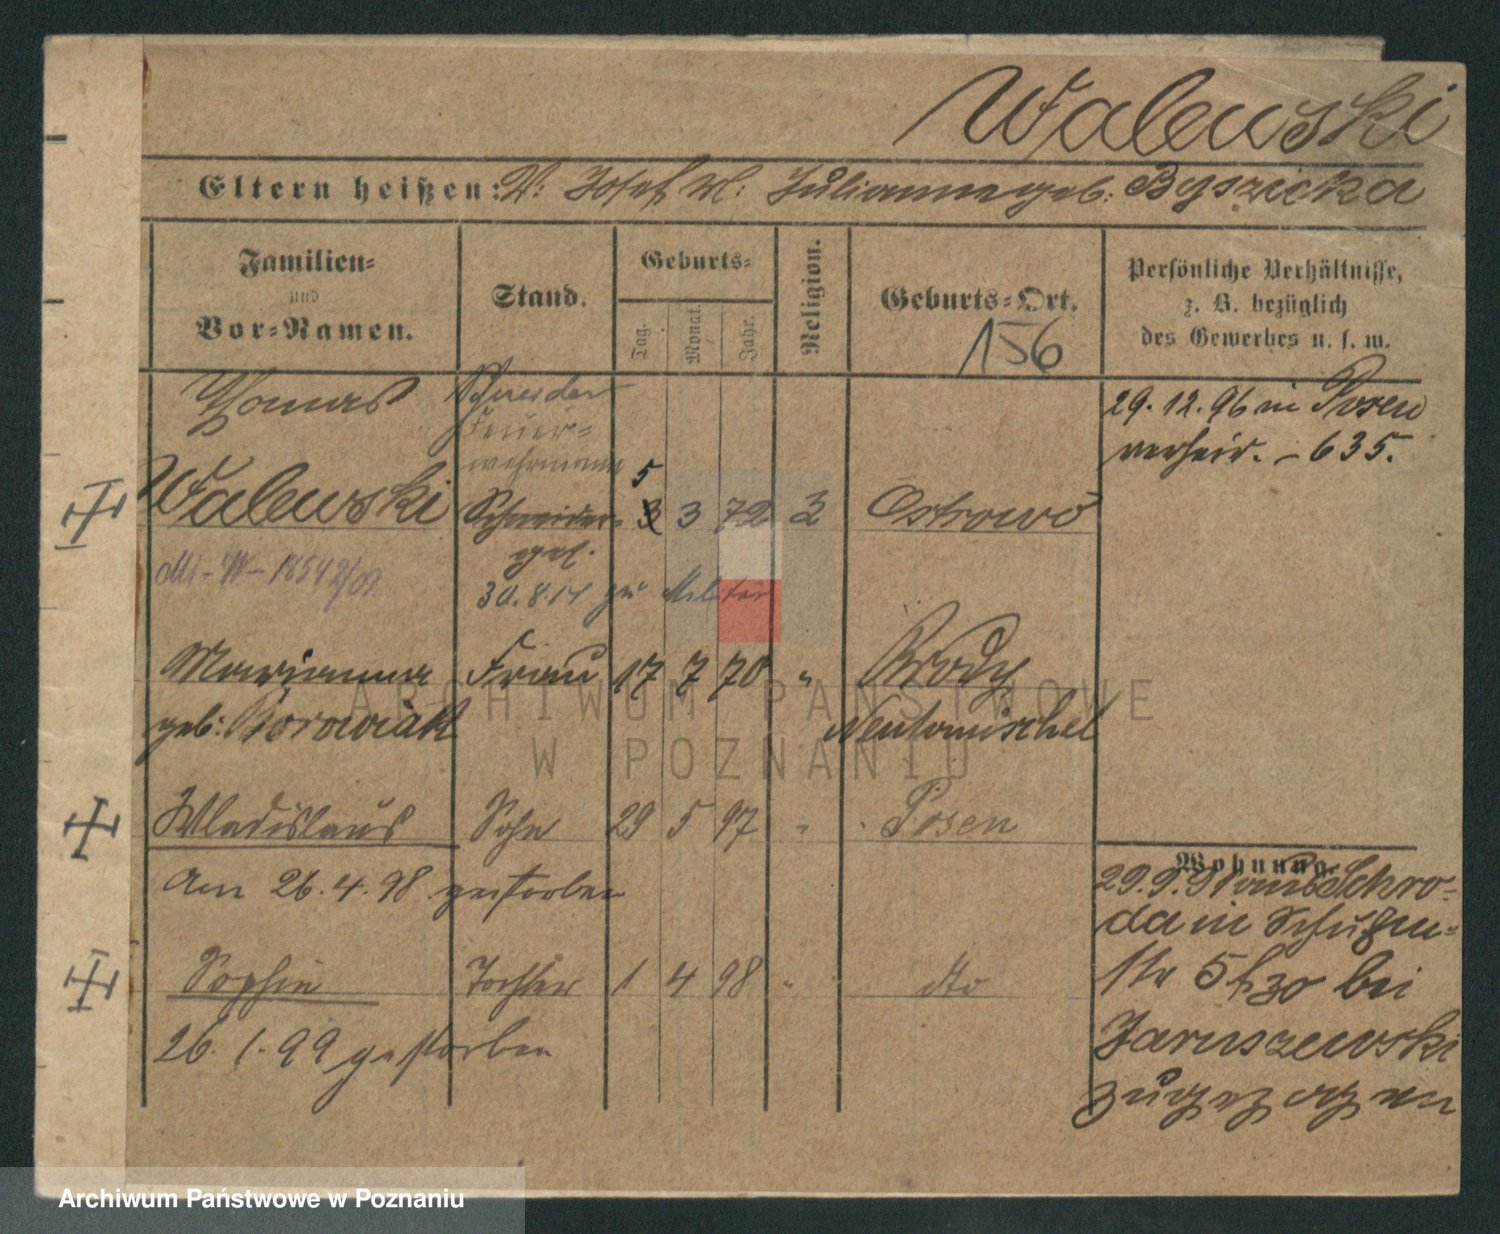 Walewski
Eltern heißen: V: Josef, M: Julianna geb. Byszicka
Familien-
und
Vor-Namen.
Stand.
Geburts-
Tag.
Monat.
Jahr.
Religion.
Geburts-Ort.
156
Persönliche Verhältnisse,
z. B. bezüglich
des Gewerbes u. s. w.
Thomas Schneider
Feuer-
wehrmann
29.12.96 in Posen
verheir. – 635.
5
Walewski Schneider- 3 3 72 2 Ostrowo
ges.
30.8.14 zu Militär
Marianna Frau 17 7 70 " Brody
geb: Borowiak Neutomischel
Wladislaus Sohn 29 5 97 " Posen
Am 26.4.98 gestorben
Sophie Tochter 1 4 98 " dto
26.1.99 gestorben
Wohnung.
29.9. aus Schro-
da in Schützen-
str 5 h30 bei
Jaruszewski
zugezogen
ARCHIWUM PAŃSTWOWE
W POZNANIU
Archiwum Państwowe w Poznaniu